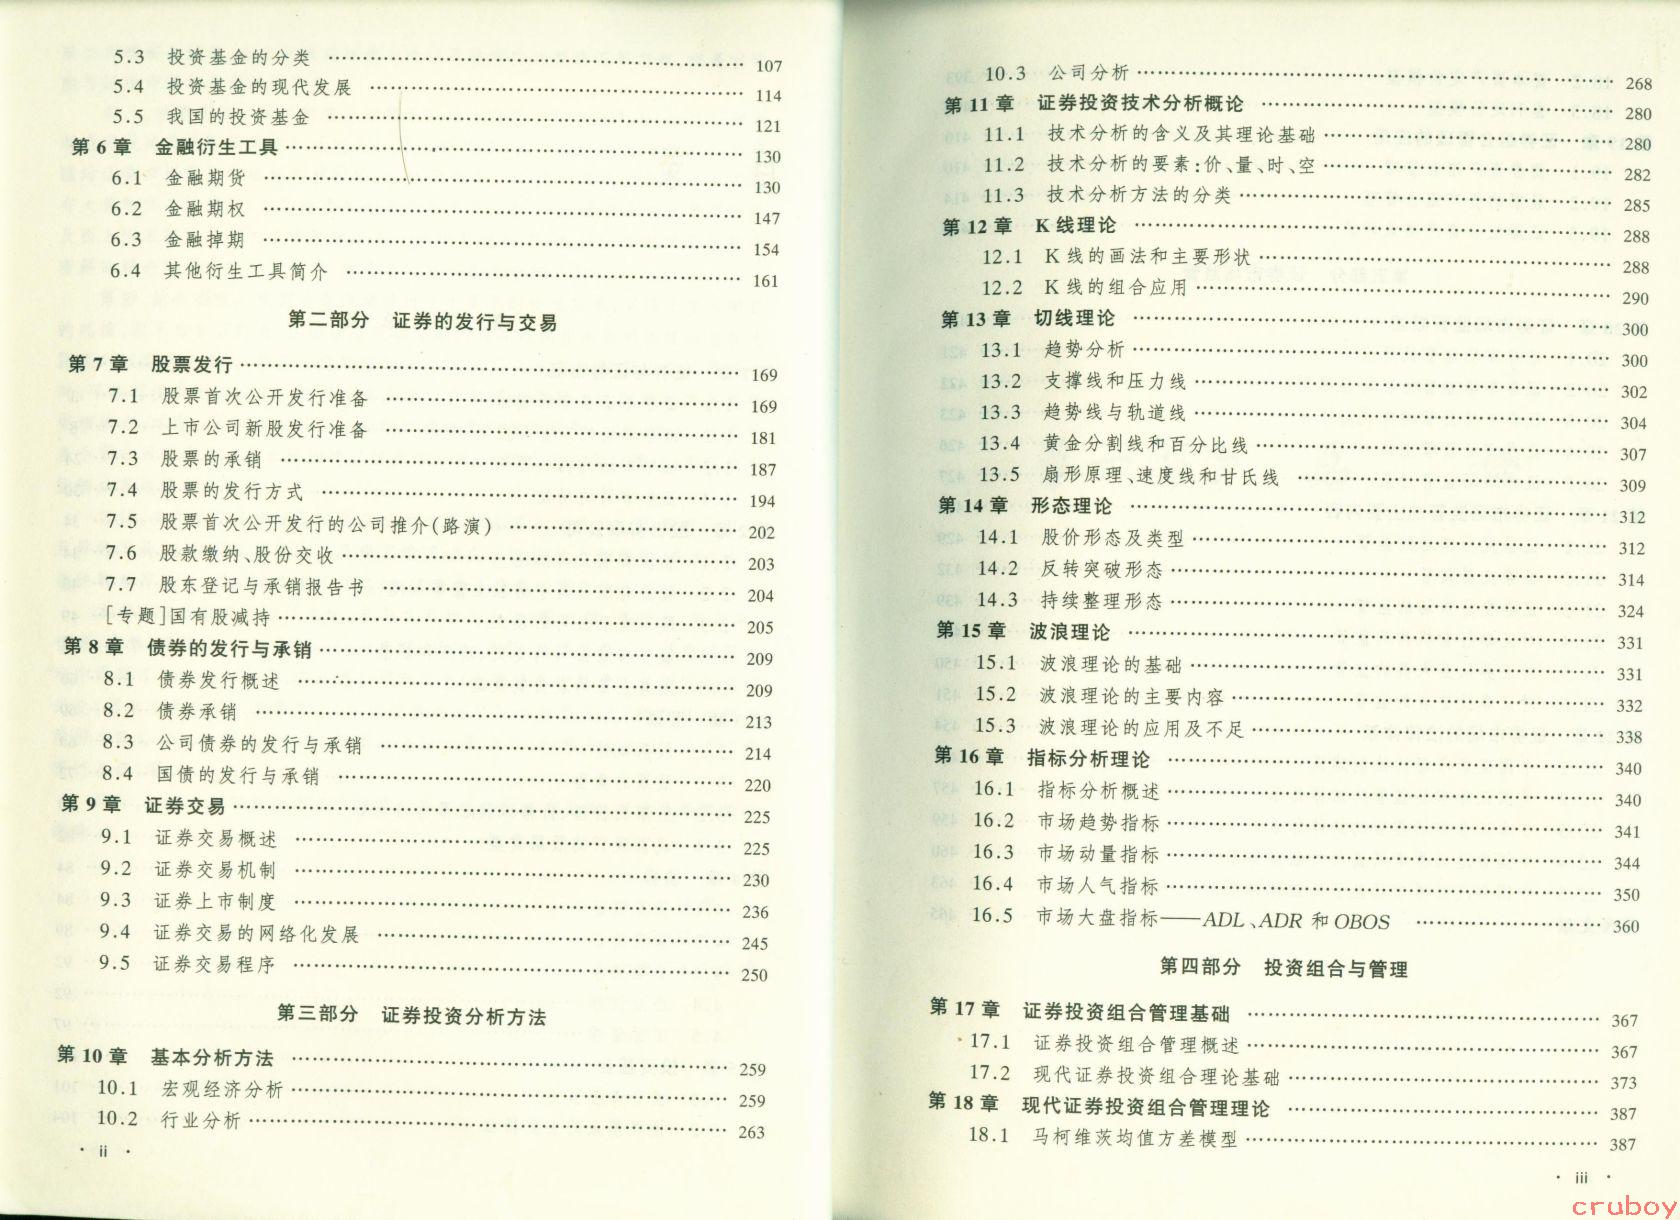 5.3 投资基金的分类 …… 107
5.4 投资基金的现代发展 …… 114
5.5 我国的投资基金 …… 121
第6章 金融衍生工具 …… 130
6.1 金融期货 …… 130
6.2 金融期权 …… 147
6.3 金融掉期 …… 154
6.4 其他衍生工具简介 …… 161
第二部分 证券的发行与交易
第7章 股票发行 …… 169
7.1 股票首次公开发行准备 …… 169
7.2 上市公司新股发行准备 …… 181
7.3 股票的承销 …… 187
7.4 股票的发行方式 …… 194
7.5 股票首次公开发行的公司推介(路演) …… 202
7.6 股款缴纳、股份交收 …… 203
7.7 股东登记与承销报告书 …… 204
[专题]国有股减持 …… 205
第8章 债券的发行与承销 …… 209
8.1 债券发行概述 …… 209
8.2 债券承销 …… 213
8.3 公司债券的发行与承销 …… 214
8.4 国债的发行与承销 …… 220
第9章 证券交易 …… 225
9.1 证券交易概述 …… 225
9.2 证券交易机制 …… 230
9.3 证券上市制度 …… 236
9.4 证券交易的网络化发展 …… 245
9.5 证券交易程序 …… 250
第三部分 证券投资分析方法
第10章 基本分析方法 …… 259
10.1 宏观经济分析 …… 259
10.2 行业分析 …… 263
· ii ·
10.3 公司分析 …… 268
第11章 证券投资技术分析概论 …… 280
11.1 技术分析的含义及其理论基础 …… 280
11.2 技术分析的要素:价、量、时、空 …… 282
11.3 技术分析方法的分类 …… 285
第12章 K线理论 …… 288
12.1 K线的画法和主要形状 …… 288
12.2 K线的组合应用 …… 290
第13章 切线理论 …… 300
13.1 趋势分析 …… 300
13.2 支撑线和压力线 …… 302
13.3 趋势线与轨道线 …… 304
13.4 黄金分割线和百分比线 …… 307
13.5 扇形原理、速度线和甘氏线 …… 309
第14章 形态理论 …… 312
14.1 股价形态及类型 …… 312
14.2 反转突破形态 …… 314
14.3 持续整理形态 …… 324
第15章 波浪理论 …… 331
15.1 波浪理论的基础 …… 331
15.2 波浪理论的主要内容 …… 332
15.3 波浪理论的应用及不足 …… 338
第16章 指标分析理论 …… 340
16.1 指标分析概述 …… 340
16.2 市场趋势指标 …… 341
16.3 市场动量指标 …… 344
16.4 市场人气指标 …… 350
16.5 市场大盘指标——ADL、ADR和OBOS …… 360
第四部分 投资组合与管理
第17章 证券投资组合管理基础 …… 367
17.1 证券投资组合管理概述 …… 367
17.2 现代证券投资组合理论基础 …… 373
第18章 现代证券投资组合管理理论 …… 387
18.1 马柯维茨均值方差模型 …… 387
· iii ·
cruboy